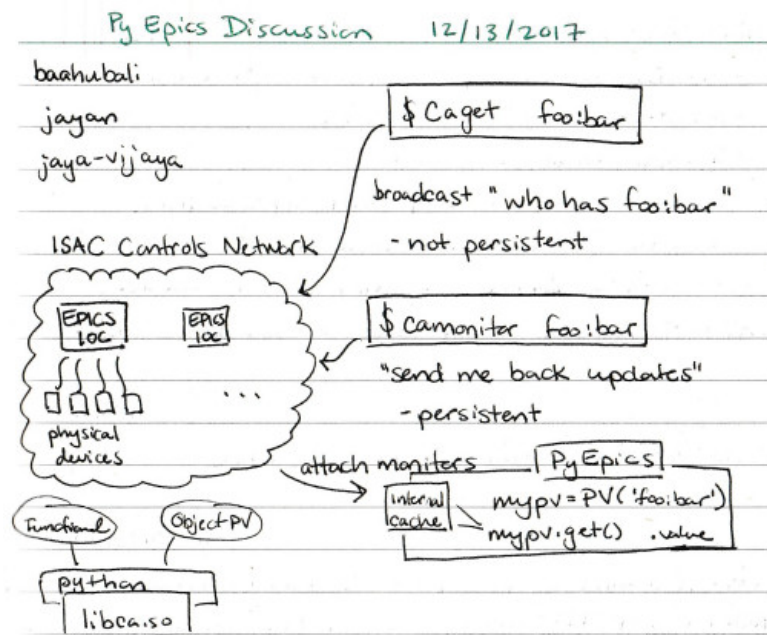 Py Epics Discussion 12/13/2017
baahubali
jayan
jaya-vijaya
$ Caget foo:bar
broadcast "who has foo:bar"
- not persistent
ISAC Controls Network
EPICS
IOC
EPICS
IOC
...
physical
devices
$ camonitor foo:bar
"send me back updates"
- persistent
attach monitors
PyEpics
internal
cache
mypv = PV('foo:bar')
mypv.get() .value
Functional
Object PV
python
libca.so